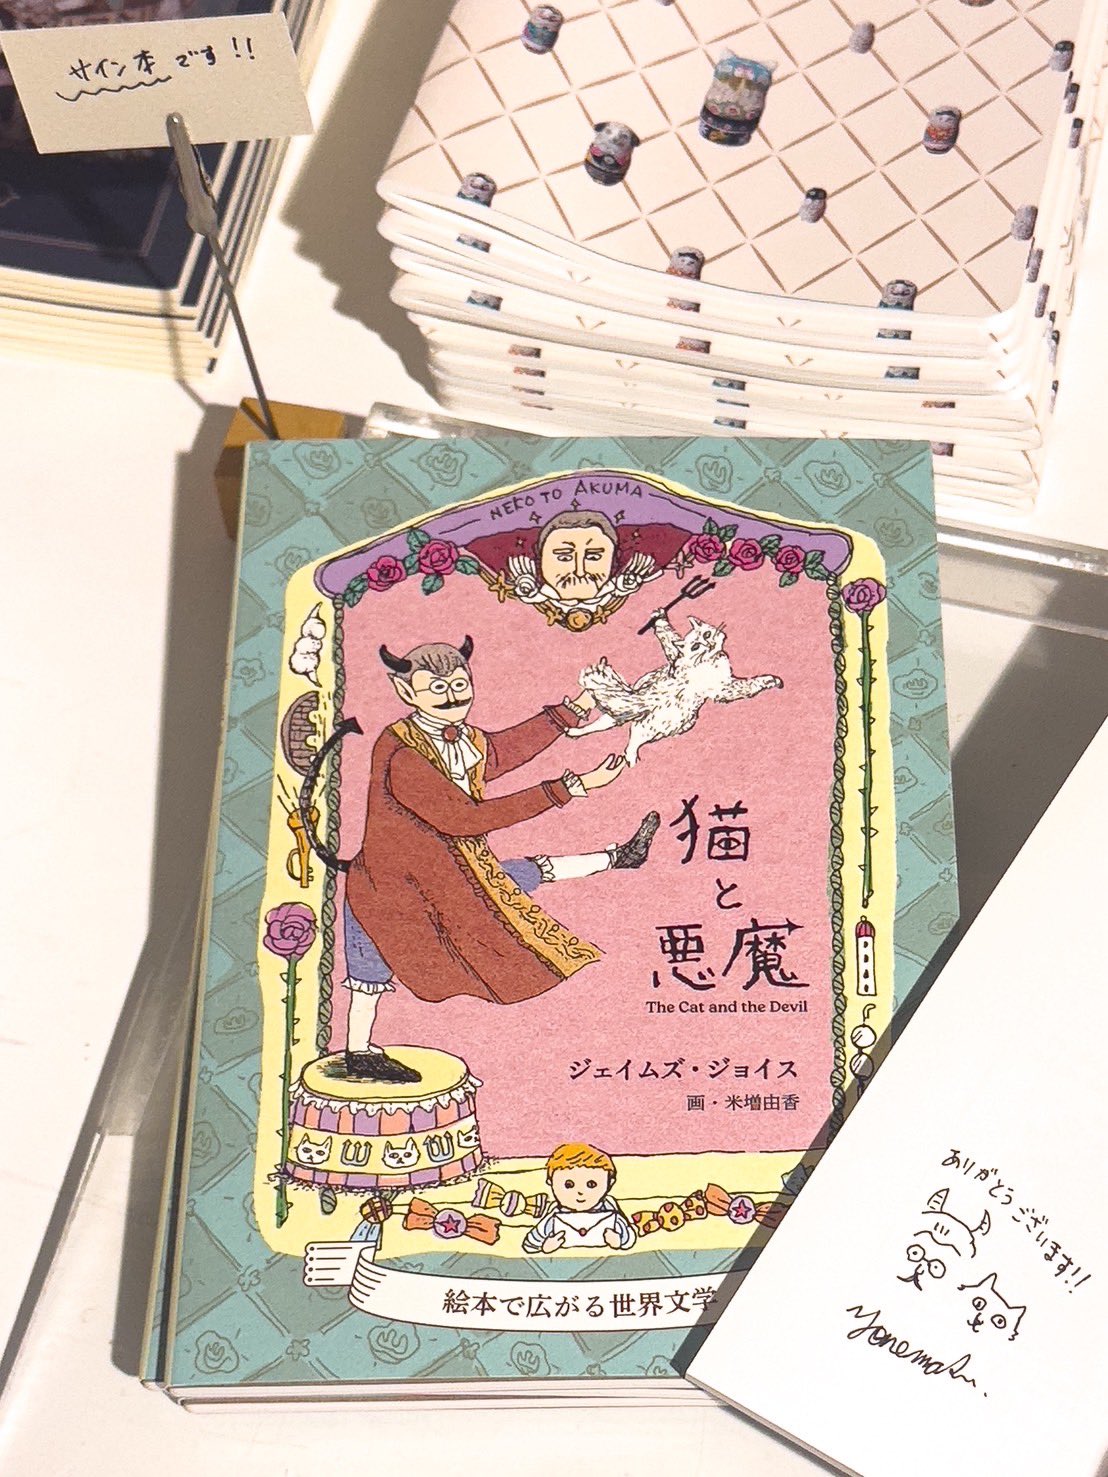 サイン本です!!
NEKO TO AKUMA
猫
と
悪魔
The Cat and the Devil
ジェイムズ・ジョイス
画・米増由香
絵本で広がる世界文学
ありがとうございます!!
Yonemasu.